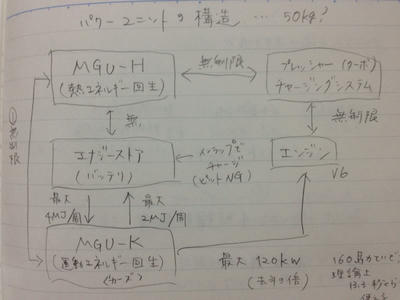 パワーユニットの構造 … 50kg?
MGU-H
(熱エネルギー回生)
無制限
プレッシャー(ターボ)
チャージングシステム
①無制限
無
無制限
エナジーストア
(バッテリ)
インラップで
チャージ
(ピットNG)
エンジン
V6
最大
4MJ/周
最大
2MJ/周
MGU-K
(運動エネルギー回生)
(カーズ)
最大 120kw
(去年の倍)
160馬力
理論上